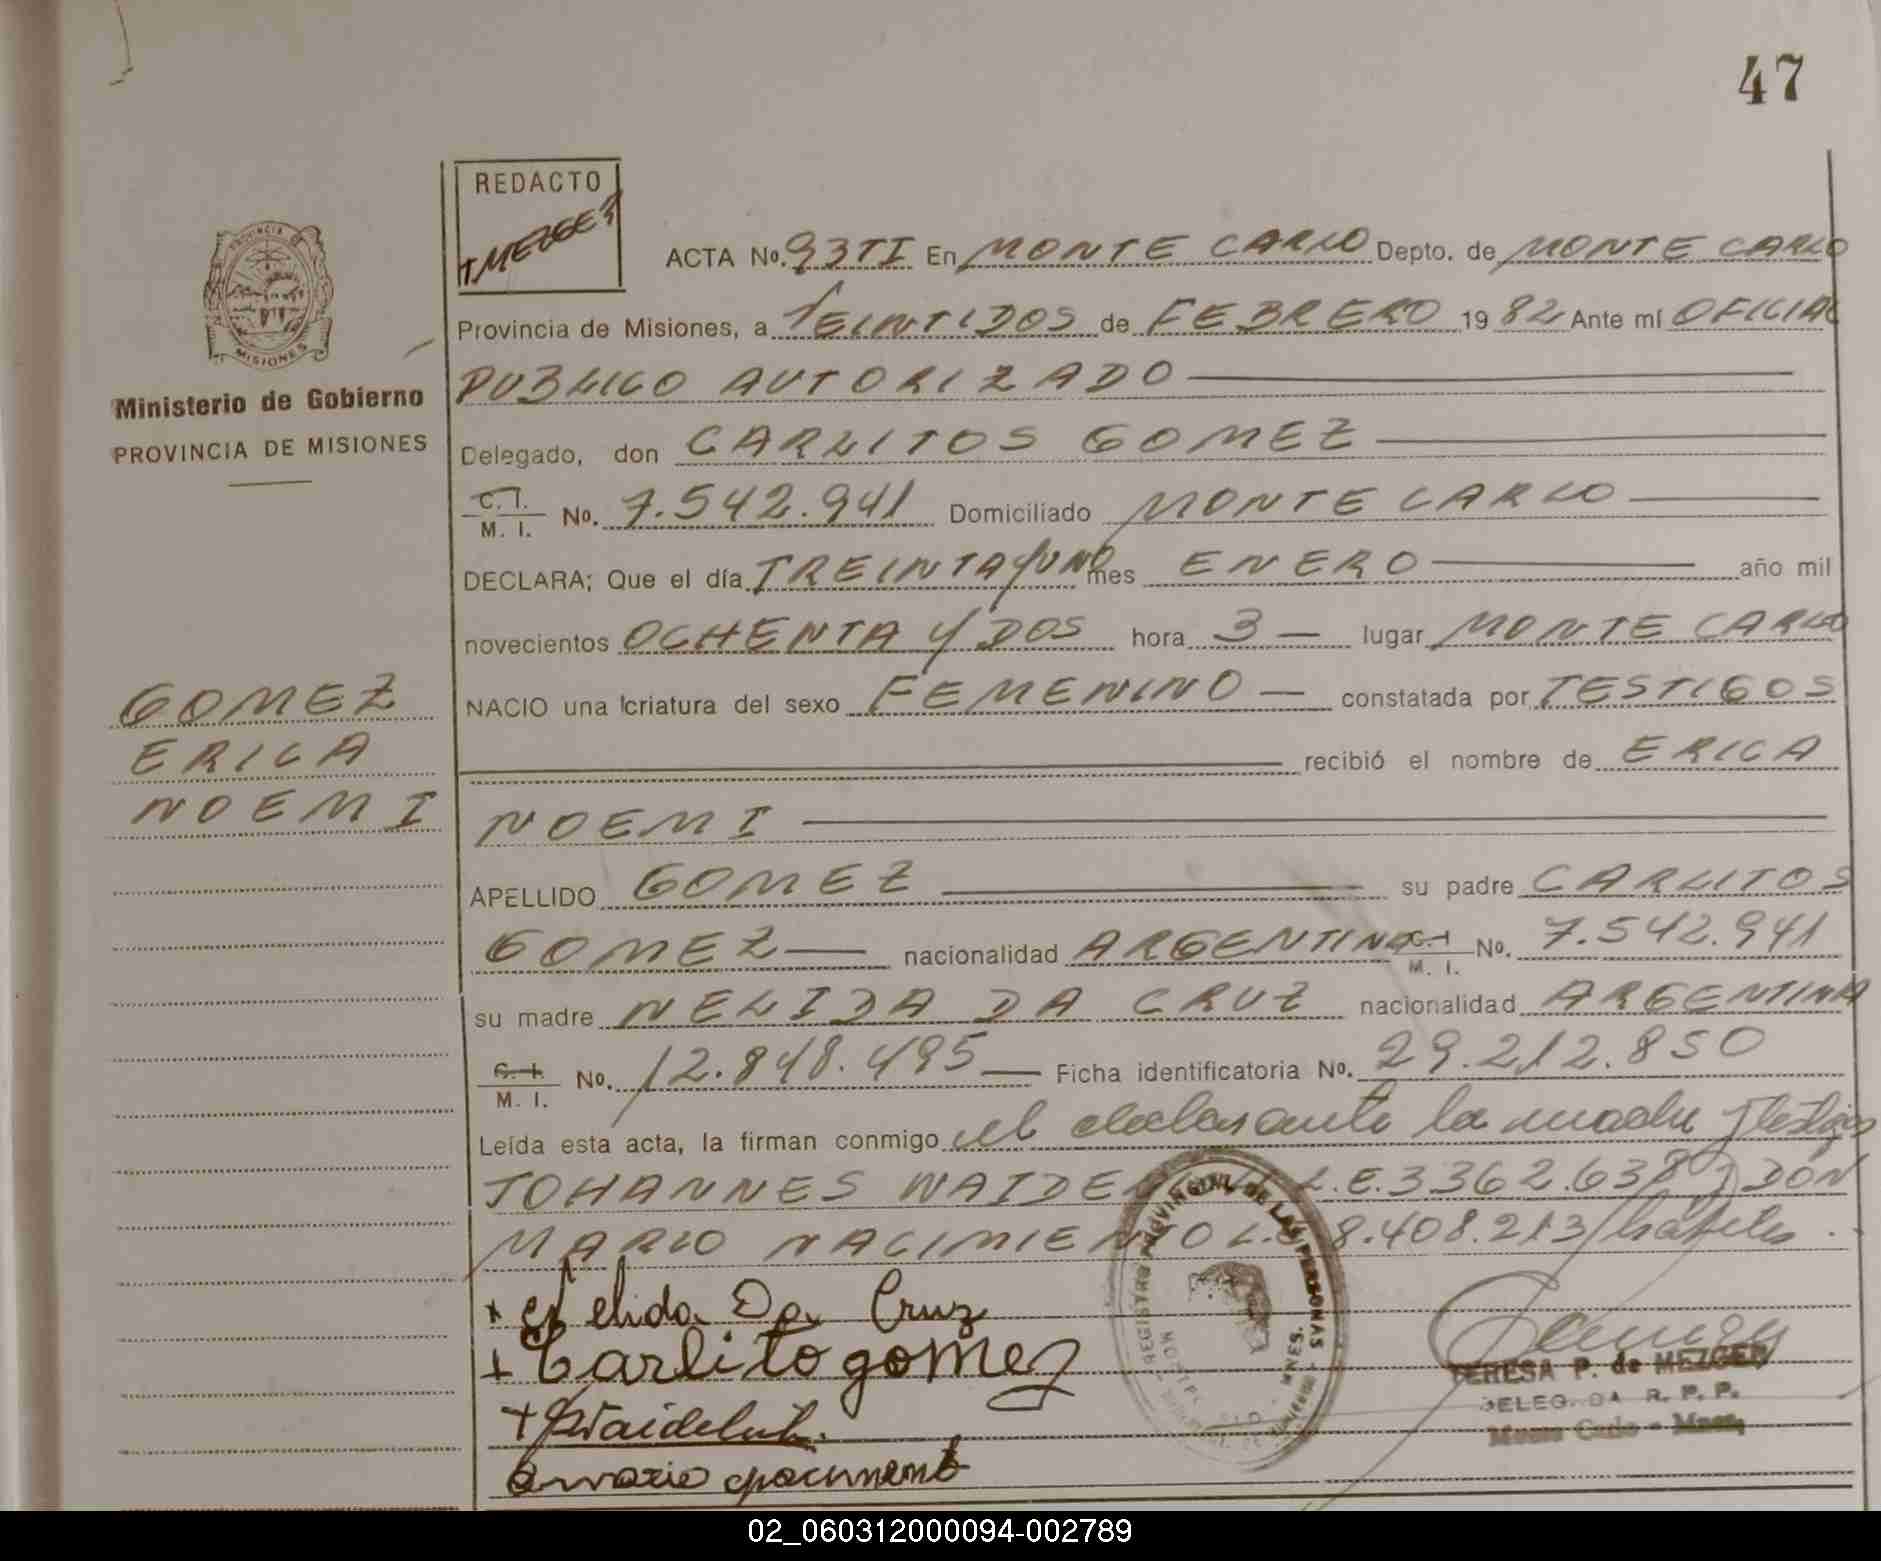 47
REDACTO
TMEZGER
PROVINCIA DE
MISIONES
Ministerio de Gobierno
PROVINCIA DE MISIONES
ACTA No. 93TI En MONTE CARLO Depto. de MONTE CARLO
Provincia de Misiones, a VEINTIDOS de FEBRERO 1982 Ante mí OFICIAL
PUBLICO AUTORIZADO
Delegado, don CARLITOS GOMEZ
C. I.
M. I. No. 7.542.941 Domiciliado MONTE CARLO
DECLARA; Que el día TREINTA Y UNO mes ENERO año mil
novecientos OCHENTA Y DOS hora 3 lugar MONTE CARLO
NACIO una criatura del sexo FEMENINO constatada por TESTIGOS
recibió el nombre de ERICA
NOEMI
GOMEZ
ERICA
NOEMI
APELLIDO GOMEZ su padre CARLITOS
GOMEZ nacionalidad ARGENTINA C. I. M. I. No. 7.542.941
su madre NELIDA DA CRUZ nacionalidad ARGENTINA
C. I.
M. I. No. 12.848.495 Ficha identificatoria No. 29.212.850
Leída esta acta, la firman conmigo el declarante la madre y testigos
JOHANNES L.E. 3362.638 y DON
MARIO NACIMIENTO L.E 8.408.213
Da Cruz
Carlito gomez
REGISTRO PROVINCIAL DE LAS PERSONAS
TERESA P. de MEZGER
DELEGADA R. P. P.
Monte Carlo - Mnes.
02_060312000094-002789